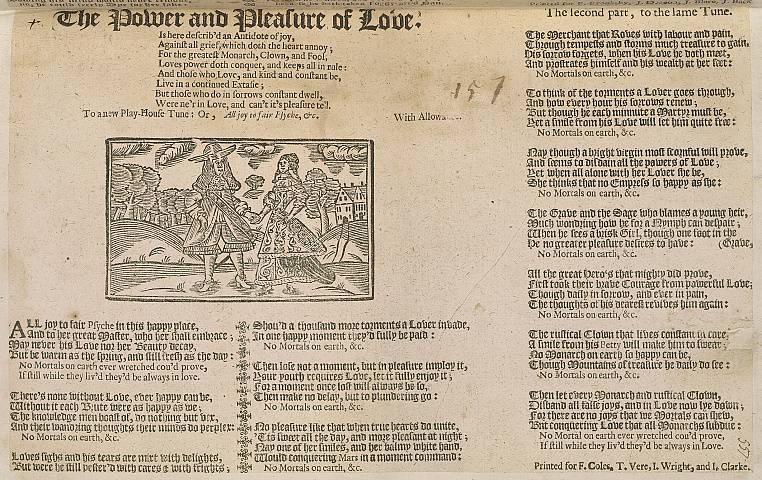 The Power and Pleasure of Love.
Is here describ'd an Antidote of joy,
Against all grief, which doth the heart annoy;
For the greatest Monarch, Clown, and Fool,
Loves power doth conquer, and keeps all in rule:
And those who Love, and kind and constant be,
Live in a continued Extasie;
But those who do in sorrows constant dwell,
Were ne'r in Love, and can't it's pleasure tell.
To a new Play-House Tune: Or, All joy to fair Psyche, &c.
With Allowa
157
ALL joy to fair Psyche in this happy place,
And to her great Master, who her shall embrace;
May never his Love nor her Beauty decay,
But be warm as the spring, and still fresh as the day:
No Mortals on earth ever wretched cou'd prove,
If still while they liv'd they'd be always in love.
There's none without Love, ever happy can be,
Without it each Brute were as happy as we;
The knowledge men boast of, do nothing but vex,
And their wandring thoughts their minds do perplex:
No Mortals on earth, &c.
Loves sighs and his tears are mixt with delights,
But were he still pester'd with cares & with frights;
Shou'd a thousand more torments a Lover invade,
In one happy moment they'd fully be paid:
No Mortals on earth, &c.
Then lose not a moment, but in pleasure imploy it,
Your youth requires Love, let it fully enjoy it;
For a moment once lost will always be so,
Then make no delay, but to plundering go:
No Mortals on earth, &c.
No pleasure like that when true hearts do unite,
'Tis sweet all the day, and more pleasant at night;
Nay one of her smiles, and her balmy white hand,
Would conquering Mars in a moment command:
No Mortals on earth, &c.
The second part, to the same Tune.
The Merchant that Roves with labour and pain,
Through tempests and storms much treasure to gain,
His sorrow forgets, when his Love he doth meet,
And prostrates himself and his wealth at her feet:
No Mortals on earth, &c.
To think of the torments a Lover goes through,
And how every hour his sorrows renew;
But though he each minnute a Martyr must be,
Yet a smile from his Love will set him quite free:
No Mortals on earth, &c.
Nay though a bright virgin most scornful will prove,
And seems to disdain all the powers of Love;
Yet when all alone with her Lover she be,
She thinks that no Empress so happy as she:
No Mortals on earth, &c.
The Grave and the Sage who blames a young heir,
Much wondring how he for a Nymph can despair;
When he sees a brisk Girl, though one foot in the
(Grave,
He no greater pleasure desires to have:
No Mortals on earth, &c.
All the great Hero's that mighty did prove,
First took their brave Courage from powerful Love;
Though daily in sorrow, and ever in pain,
The thoughts of his dearest revives him again:
No Mortals on earth, &c.
The rustical Clown that lives constant in care,
A smile from his Betty will make him to swear;
No Monarch on earth so happy can be,
Though Mountains of treasure he daily do see:
No Mortals on earth, &c.
Then let every Monarch and rustical Clown,
Disband all false joys, and in Love now lye down;
For there are no joys that we Mortals can find,
But conquering Love that all Monarchs subdue:
No Mortal on earth ever wretched cou'd prove,
If still while they liv'd they'd be always in Love.
Printed for F. Coles, T. Vere, I. Wright, and I. Clarke.